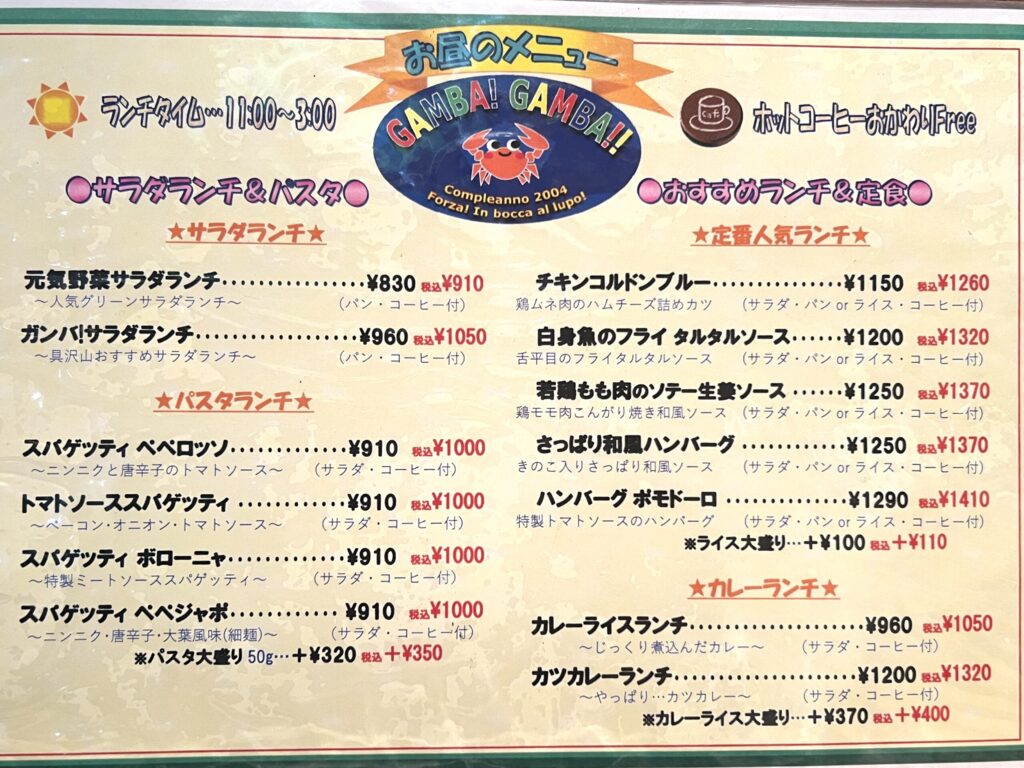 お昼のメニュー
GAMBA! GAMBA!!
Compleanno 2004
Forza! In bocca al lupo!
ランチタイム…11:00～3:00
ホットコーヒーおかわりFree
●サラダランチ&パスタ●
★サラダランチ★
元気野菜サラダランチ················¥830 税込¥910
～人気グリーンサラダランチ～ (パン・コーヒー付)
ガンバ!サラダランチ··················¥960 税込¥1050
～具沢山おすすめサラダランチ～ (パン・コーヒー付)
★パスタランチ★
スパゲッティ ペペロッソ·············¥910 税込¥1000
～ニンニクと唐辛子のトマトソース～ (サラダ・コーヒー付)
トマトソーススパゲッティ·············¥910 税込¥1000
～ベーコン・オニオン・トマトソース～ (サラダ・コーヒー付)
スパゲッティ ボローニャ·············¥910 税込¥1000
～特製ミートソーススパゲッティ～ (サラダ・コーヒー付)
スパゲッティ ペペジャポ·············¥910 税込¥1000
～ニンニク・唐辛子・大葉風味(細麺)～ (サラダ・コーヒー付)
※パスタ大盛り50g…＋¥320 税込＋¥350
●おすすめランチ&定食●
★定番人気ランチ★
チキンコルドンブルー···············¥1150 税込¥1260
鶏ムネ肉のハムチーズ詰めカツ (サラダ・パン or ライス・コーヒー付)
白身魚のフライ タルタルソース······¥1200 税込¥1320
舌平目のフライタルタルソース (サラダ・パン or ライス・コーヒー付)
若鶏もも肉のソテー生姜ソース······¥1250 税込¥1370
鶏モモ肉こんがり焼き和風ソース (サラダ・パン or ライス・コーヒー付)
さっぱり和風ハンバーグ ············¥1250 税込¥1370
きのこ入りさっぱり和風ソース (サラダ・パン or ライス・コーヒー付)
ハンバーグ ポモドーロ ··············¥1290 税込¥1410
特製トマトソースのハンバーグ (サラダ・パン or ライス・コーヒー付)
※ライス大盛り…＋¥100 税込＋¥110
★カレーランチ★
カレーライスランチ····················¥960 税込¥1050
～じっくり煮込んだカレー～ (サラダ・コーヒー付)
カツカレーランチ·····················¥1200 税込¥1320
～やっぱり…カツカレー～ (サラダ・コーヒー付)
※カレーライス大盛り…＋¥370 税込＋¥400